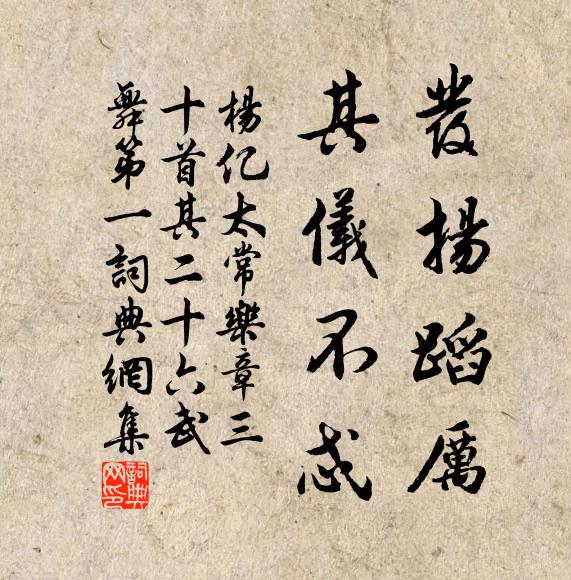 發揚蹈厲
其儀不忒
楊億太常樂章三
十首其二十六武
舞第一詞典網集
詞典
網印